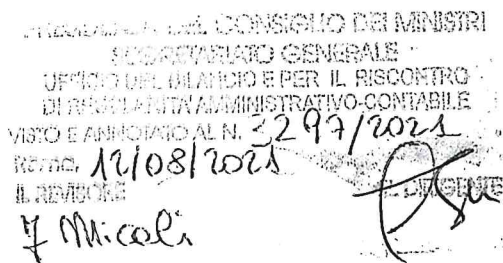 PRESIDENZA DEL CONSIGLIO DEI MINISTRI
SEGRETARIATO GENERALE
UFFICIO DEL BILANCIO E PER IL RISCONTRO
DI REGOLARITÀ AMMINISTRATIVO-CONTABILE
VISTO E ANNOTATO AL N. 3297/2021
Roma, 12/08/2021
IL REVISORE IL DIRIGENTE
F Micoli